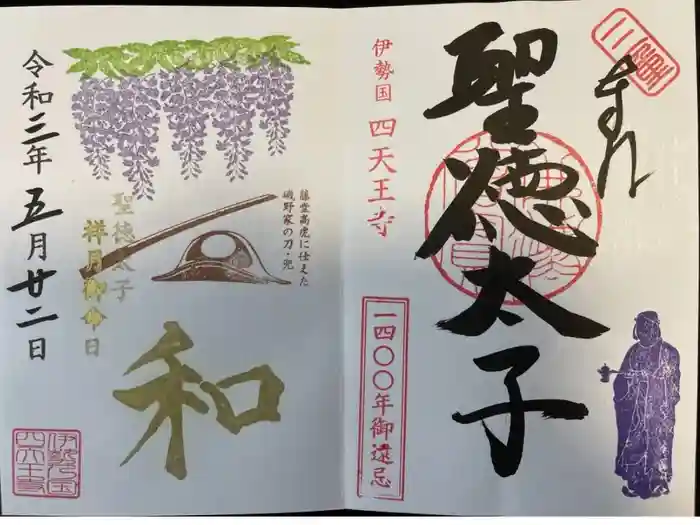 聖徳太子
伊勢国 四天王寺
一四〇〇年御遠忌
藤堂高虎に仕えた
磯野家の刀・兜
和
聖徳太子
祥月御命日
令和三年五月廿二日